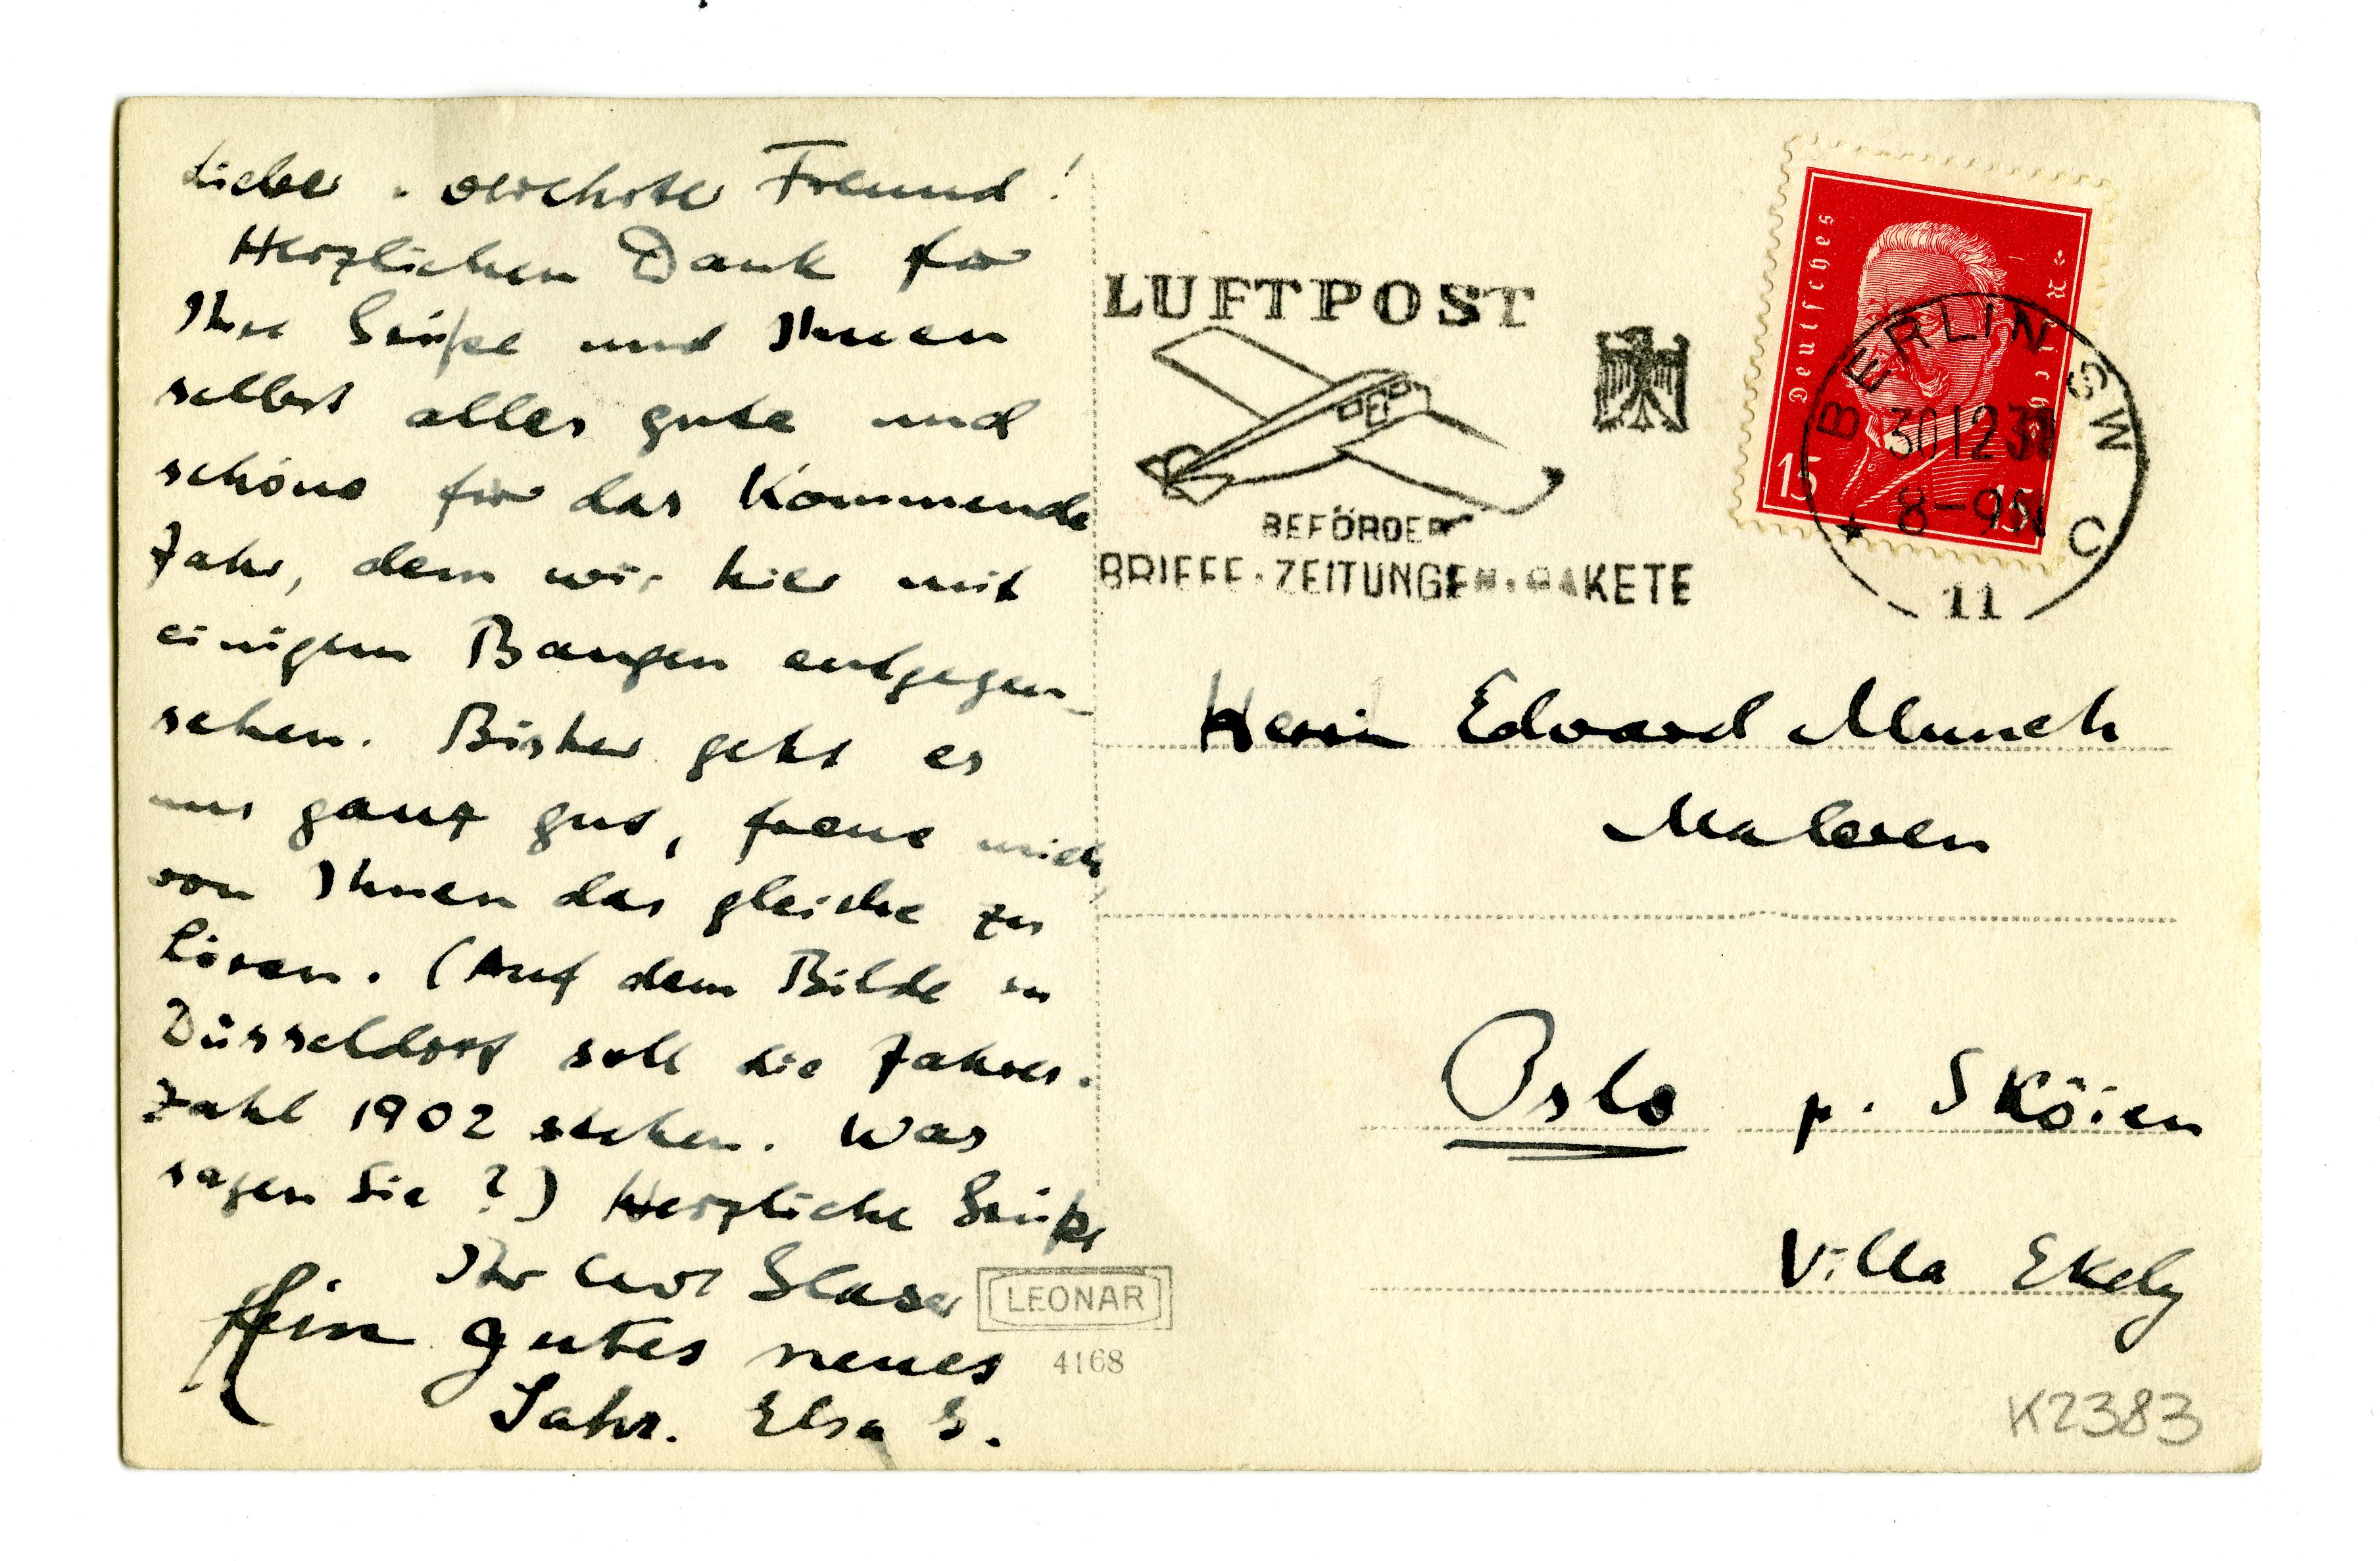 Lieber, verehrter Freund!
Herzlichen Dank für
Ihre Grüsse und Ihnen
selbst alles gute und
schöne für das Kommende
Jahr, dem wir hier mit
einigem Bangen entgegen-
sehen. Bisher geht es
uns ganz gut, freue mich,
von Ihnen das gleiche zu
hören. (Auf dem Bilde in
Düsseldorf soll die Jahres-
zahl 1902 stehen. Was
sagen Sie?) Herzliche Grüsse
Ihr Curt Glaser
Ein gutes neues
Jahr. Elsa G.
LEONAR
4168
LUFTPOST
BEFÖRDERT
BRIEFE·ZEITUNGEN·PAKETE
Deutsches Reich
15 15
BERLIN SW
30 12 8-9 N
* 11 C
Herrn Edvard Munch
Maleren
Oslo p. Sköien
Villa Ekely
K2383